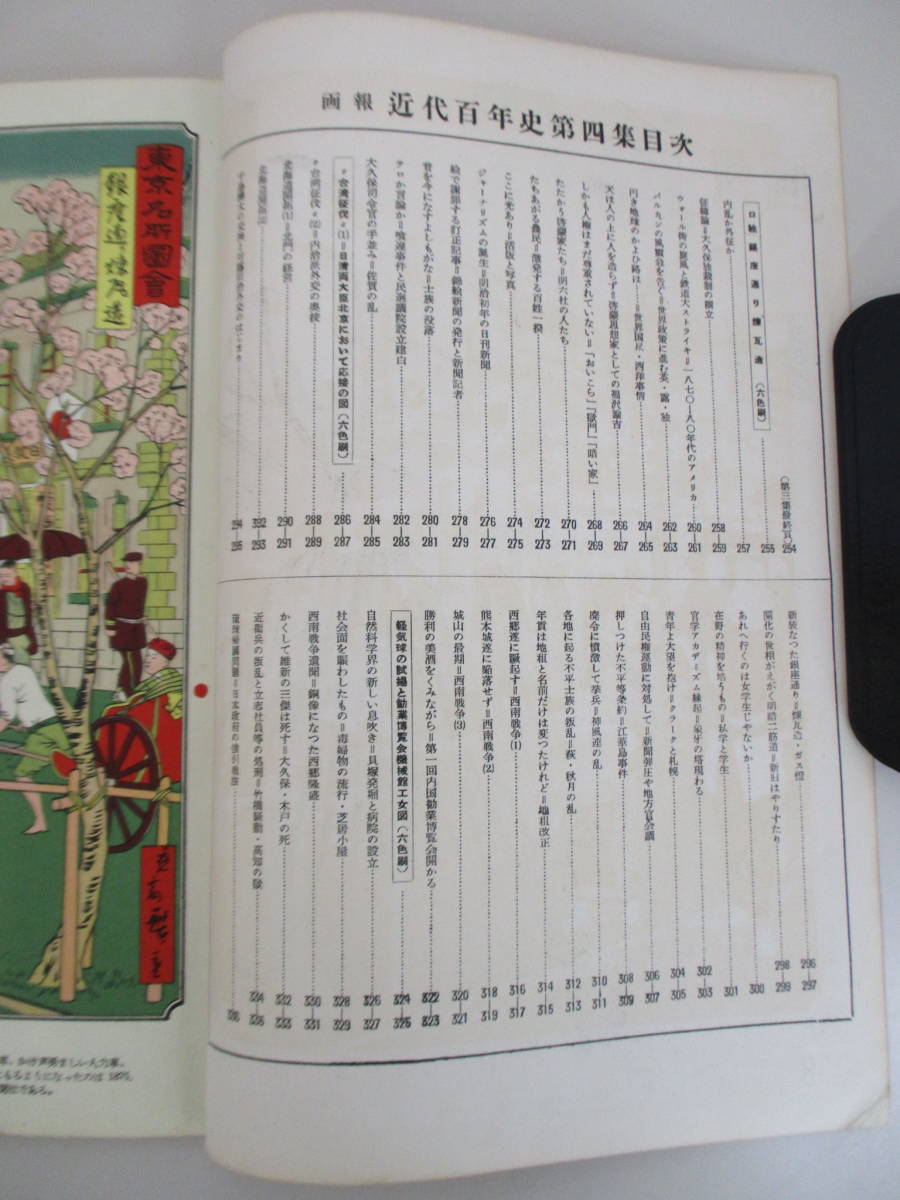 画報 近代百年史第四集目次
(第三集最終頁) 254
口絵 銀座通り煉瓦造 (六色刷) 255
内乱か外征か 257
征韓論=大久保独裁制の樹立 258 259
ウォール街の旋風と鉄道大ストライキ=一八七〇—八〇年代のアメリカ 260 261
バルカンの風雲急を告ぐ=世界政策に進む英・露・独 262 263
円き地球のかよひ路は=世界国尽・西洋事情 264 265
天は人の上に人を造らず=啓蒙思想家としての福沢諭吉 266 267
しかも人権はまだ尊重されていない=「おいこら」「獄門」「暗い家」 268 269
たたかう啓蒙家たち=明六社の人たち 270 271
たちあがる農民=激発する百姓一揆 272 273
ここに光あり=活版と写真 274 275
ジャーナリズムの誕生=明治初年の日刊新聞 276 277
絵で謝罪する訂正記事=錦絵新聞の発行と新聞記者 278 279
昔を今になすよしもがな=士族の没落 280 281
テロか言論か=喰違事件と民選議院設立建白 282 283
大久保司令官の手並み=佐賀の乱 284 285
〃台湾征伐〃(1)=日清両大臣北京において応接の図(六色刷) 286 287
〃台湾征伐〃(2)=内治派外交の奥技 288 289
北海道開拓(1)=北門の経営 290 291
北海道開拓(2) 292 293
294 295
新装なった銀座通り=煉瓦造・ガス燈 296 297
開化の世相がえがく明暗二筋道=新旧はやりすたり 298 299
あれへ行くのは女学生じゃないか 300
在野の精神を培うもの=私学と学生 301
官学アカデミズム縁起=象牙の塔現わる 302 303
青年よ大望を抱け=クラークと札幌 304 305
自由民権運動に対処して=新聞弾圧や地方官会議 306 307
押しつけた不平等条約=江華島事件 308 309
廃令に憤激して挙兵=神風連の乱 310 311
各地に起る不平士族の叛乱=萩・秋月の乱 312 313
年貢は地租と名前だけは変つたけれど=地租改正 314 315
西郷遂に蹶起す=西南戦争(1) 316 317
熊本城遂に陥落せず=西南戦争(2) 318 319
城山の最期=西南戦争(3) 320 321
勝利の美酒をくみながら=第一回内国勧業博覧会開かる 322 323
軽気球の試揚と勧業博覧会機械館工女図(六色刷) 324 325
自然科学界の新しい息吹き=貝塚発掘と病院の設立 326 327
社会面を賑わしたもの=毒婦物の流行・芝居小屋 328 329
西南戦争遺聞=銅像になった西郷隆盛 330 331
かくして維新の三傑は死す=大久保・木戸の死 332 333
近衛兵の叛乱と立志社員等の処刑=竹橋騒動・高知の獄 334 335
琉球帰属問題=日本政府の強引政策 336
東京名所圖會
銀座通り煉瓦造